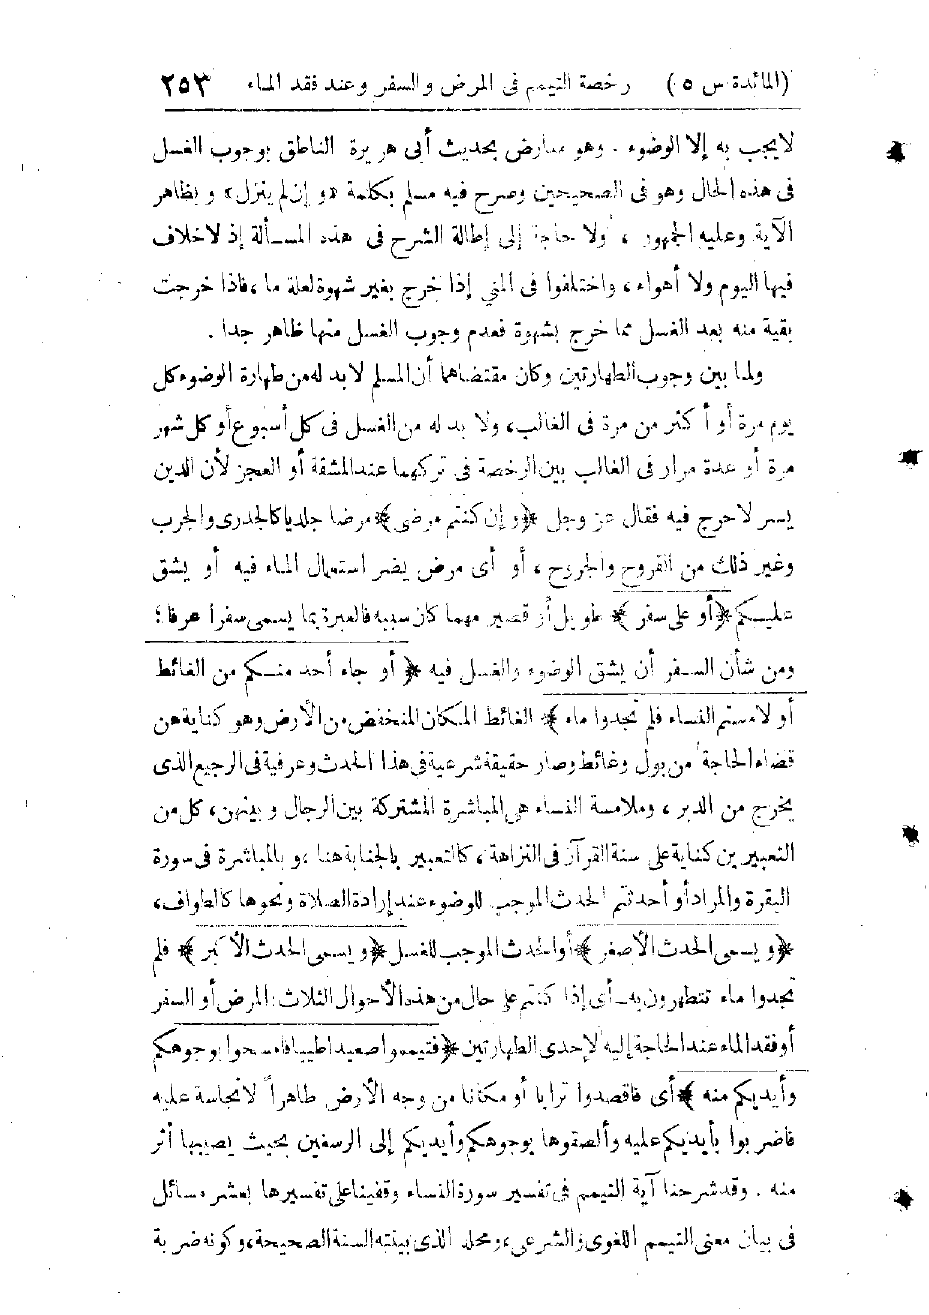 (المائدة س ٥) رخصة التيمم فى المرض والسفر وعند فقد الماء ٢٥٣
لايجب به إلا الوضوء . وهو معارض بحديث أبى هريرة الناطق بوجوب الغسل
فى هذه الحال وهو فى الصحيحين وصرح فيه مسلم بكلمة «وإن لم ينزل» وبظاهر
الآية وعليه الجمهور ، ولا حاجة إلى إطالة الشرح فى هذه المسألة إذ لاخلاف
فيها اليوم ولا أهواء ، واختلفوا فى المني إذا خرج بغير شهوة لعلة ما ، فاذا خرجت
بقية منه بعد الغسل مما خرج بشهوة فعدم وجوب الغسل منها ظاهر جدا .
ولما بين وجوب الطهارتين وكان مقتضاهما أن المسلم لابد له من طهارة الوضوء كل
يوم مرة أو أكثر من مرة فى الغالب، ولا بد له من الغسل فى كل أسبوع أو كل شهر
مرة أو عدة مرار فى الغالب بين الرخصة فى تركهما عند المشقة أو العجز لأن الدين
يسر لاحرج فيه فقال عز وجل ﴿وإن كنتم مرضى﴾ مرضا جلديا كالجدرى والجرب
وغير ذلك من القروح والجروح ، أو أى مرض يضر استعمال الماء فيه أو يشق
عليكم ﴿أو على سفر﴾ طويل أو قصير مهما كان سببه فالعبرة بما يسمى سفرا عرفا ؛
ومن شأن السفر أن يشق الوضوء والغسل فيه ﴿أو جاء أحد منكم من الغائط
أو لامستم النساء فلم تجدوا ماء﴾ الغائط المكان المنخفض من الأرض وهو كناية عن
قضاء الحاجة من بول وغائط وصار حقيقة شرعية فى هذا الحدث وعرفية فى الرجيع الذى
يخرج من الدبر ، وملامسة النساء هى المباشرة المشتركة بين الرجال وبينهن، كل من
التعبيرين كناية على سنة القرآن فى النزاهة، كالتعبير بالجنابة هنا ، وبالمباشرة فى سورة
البقرة والمراد أو أحدثتم الحدث الموجب للوضوء عند إرادة الصلاة ونحوها كالطواف،
﴿ويسمى الحدث الأصغر﴾ أو الحدث الموجب للغسل ﴿ويسمى الحدث الأكبر﴾ فلم
تجدوا ماء تتطهرون به ـ أى إذا كنتم على حال من هذه الأحوال الثلاث: المرض أو السفر
أو فقد الماء عند الحاجة إليه لإحدى الطهارتين ﴿فتيمموا صعيدا طيبا فامسحوا بوجوهكم
وأيديكم منه﴾ أى فاقصدوا ترابا أو مكانا من وجه الأرض طاهراً لانجاسة عليه
فاضربوا بأيديكم عليه وألصقوها بوجوهكم وأيديكم إلى الرسغين بحيث يصيبها أثر
منه . وقد شرحنا آية التيمم فى تفسير سورة النساء وقفينا على تفسيرها بعشر مسائل
فى بيان معنى التيمم اللغوى والشرعى، ومحله الذى بينته السنة الصحيحة، وكونه ضربة